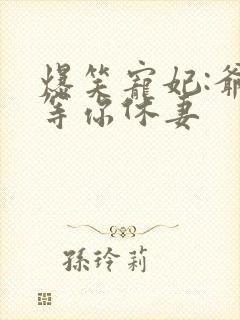 爆笑寵妃:爺
等你休妻
孫玲莉